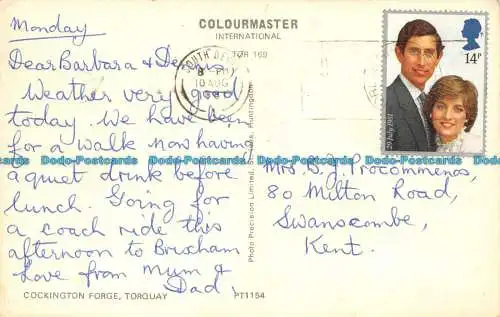 Monday
COLOURMASTER
INTERNATIONAL
TOR 169
Dear Barbara & Dennis
Weather very good
today. We have been
for a walk now having
a quiet drink before
lunch. Going for
a coach ride this
afternoon to Brixham
Love from Mum &
Dad.
COCKINGTON FORGE, TORQUAY
PT1154
Photo Precision Limited, St. Ives, Huntingdon
SOUTH DEVON
8 PM
10 AUG
14P
29 July 1981
Mrs B.J. Procommenos,
80 Milton Road,
Swanscombe,
Kent.
Dodo-Postcards Dodo-Postcards Dodo-Postcards Dodo-Postcards Dodo-Postcards
Dodo-Postcards Dodo-Postcards Dodo-Postcards Dodo-Postcards Dodo-Postcards